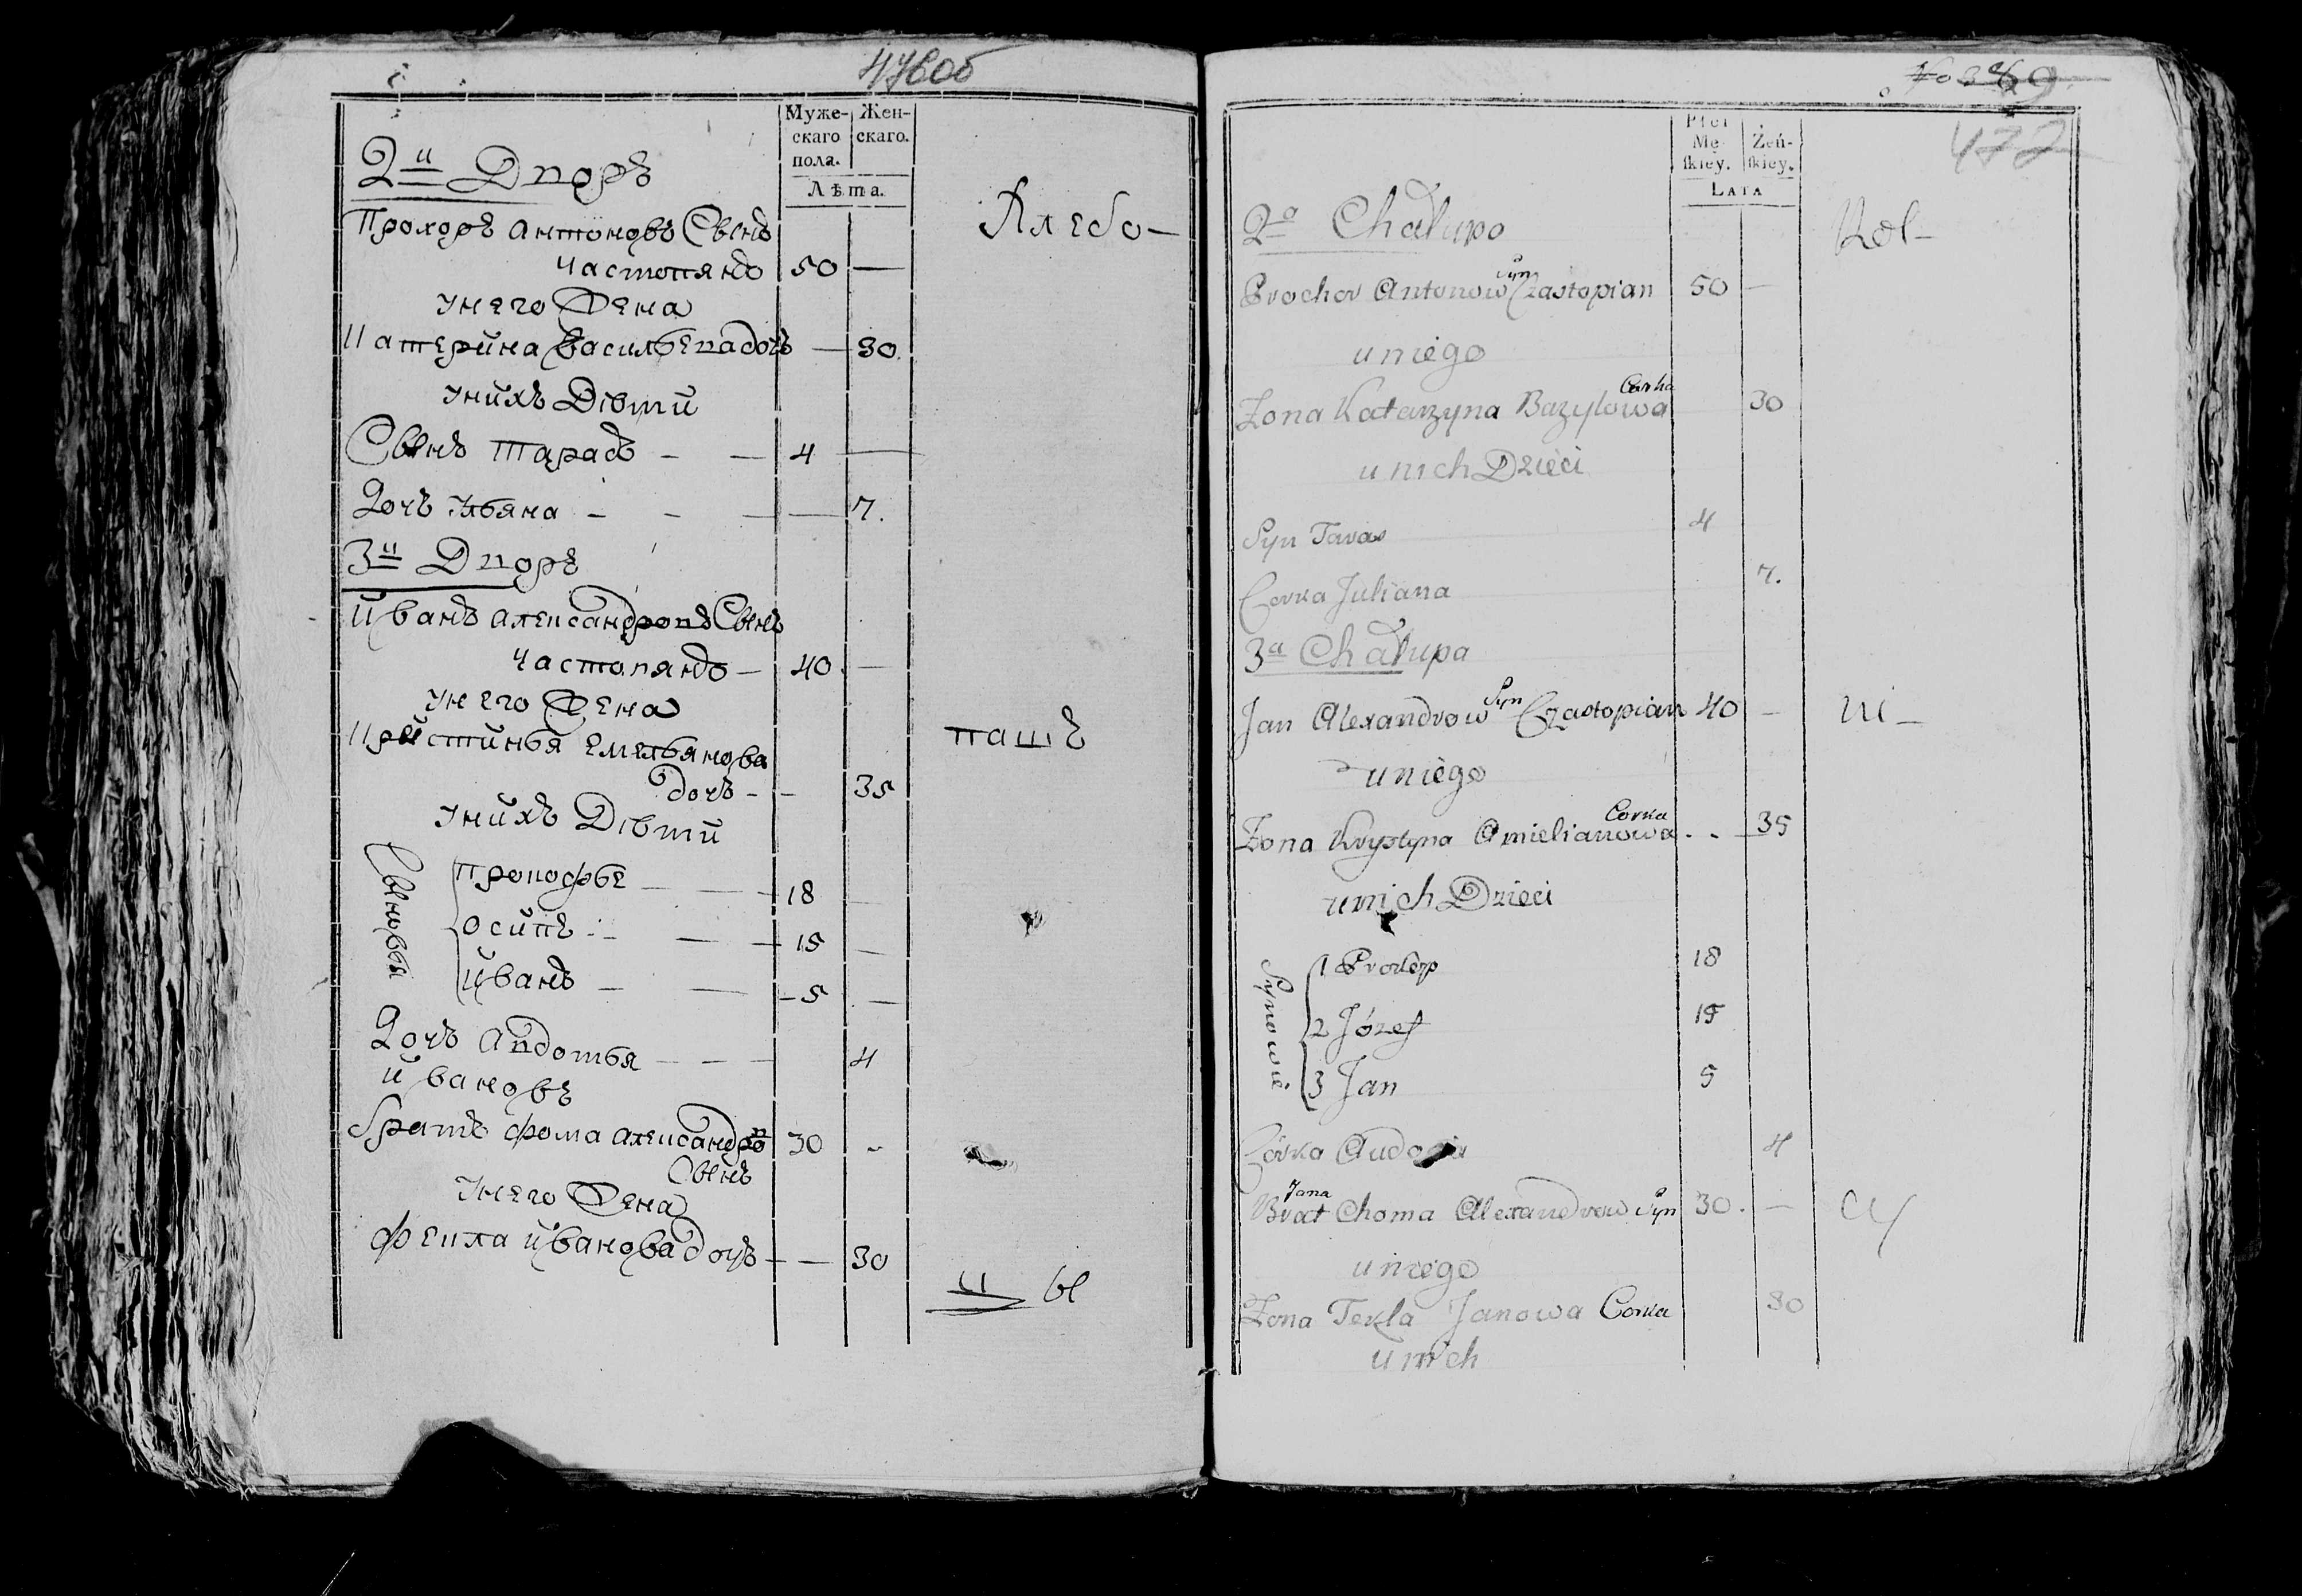 47606
Муже-
скаго
пола.
Жен-
скаго.
Лѣта.
2й Дворъ
Прохоръ антоновъ Сынъ
Частопянъ 50 —
Унего Жена
Катерина васильева дочъ — 30.
Унихъ Дѣти
Сынъ Тарасъ - — 4 —
Дочъ Ульяна - - — 7.
3й Дворъ
Иванъ александровъ Сынъ
Частопянъ — 40. —
Унего Жена
Крыстинья Емельянова
дочъ - - 35
Унихъ Дѣти
Сыновья
Прокофье — — 18 —
Осипъ - — — 15 —
Иванъ - — 5 —
Дочъ авдотья — — — 4
Ивановъ
братъ фома александровъ 30 -
Сынъ
Унего Жена
фекла ивановадочъ - — 30
Хлебо-
пашъ
цы
No
472
Płci
Mę-
ſkiey.
Żeń-
ſkiey.
Lata
2a Chałupa
Prochor Antonow Syn Czastopian 50 —
u niego
Zona Katarzyna Bazylowa Corka 30
u nich Dzieci
Syn Taras 4
Corka Juliana 7.
3a Chałupa
Jan Alexandrow Syn Czastopian 40 —
u niego
Zona Krystyna Amielianowa Corka - - 35
u nich Dzieci
Synowie
1 Prokop 18
2 Józef 15
3 Jan 5
Córka 4
Jana
Brat Choma Alexandrow Syn 30. —
u niego
Zona Tekla Janowa Corka 30
u nich
Rol-
ni-
cy